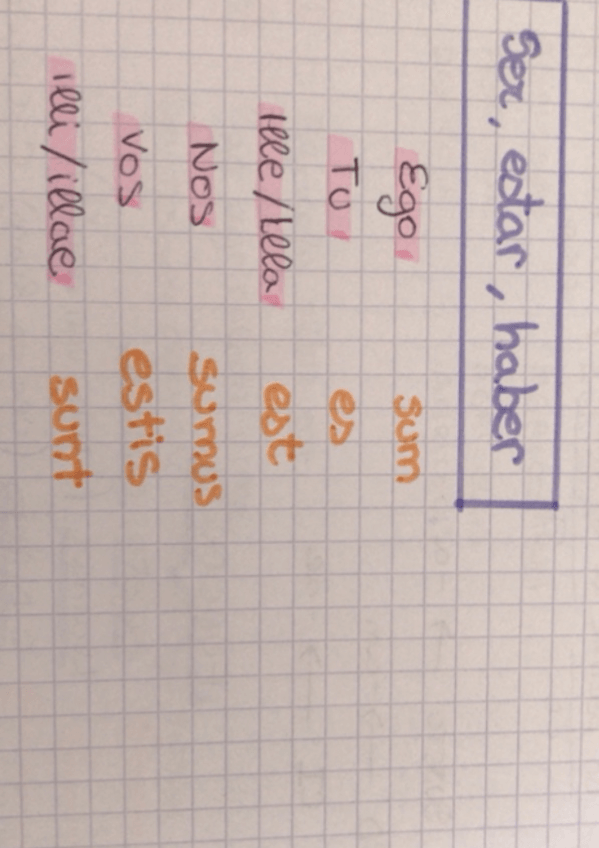 Ser, estar, haber
Ego sum
Tu es
Ille/illa est
Nos sumus
Vos estis
illi/illae sunt